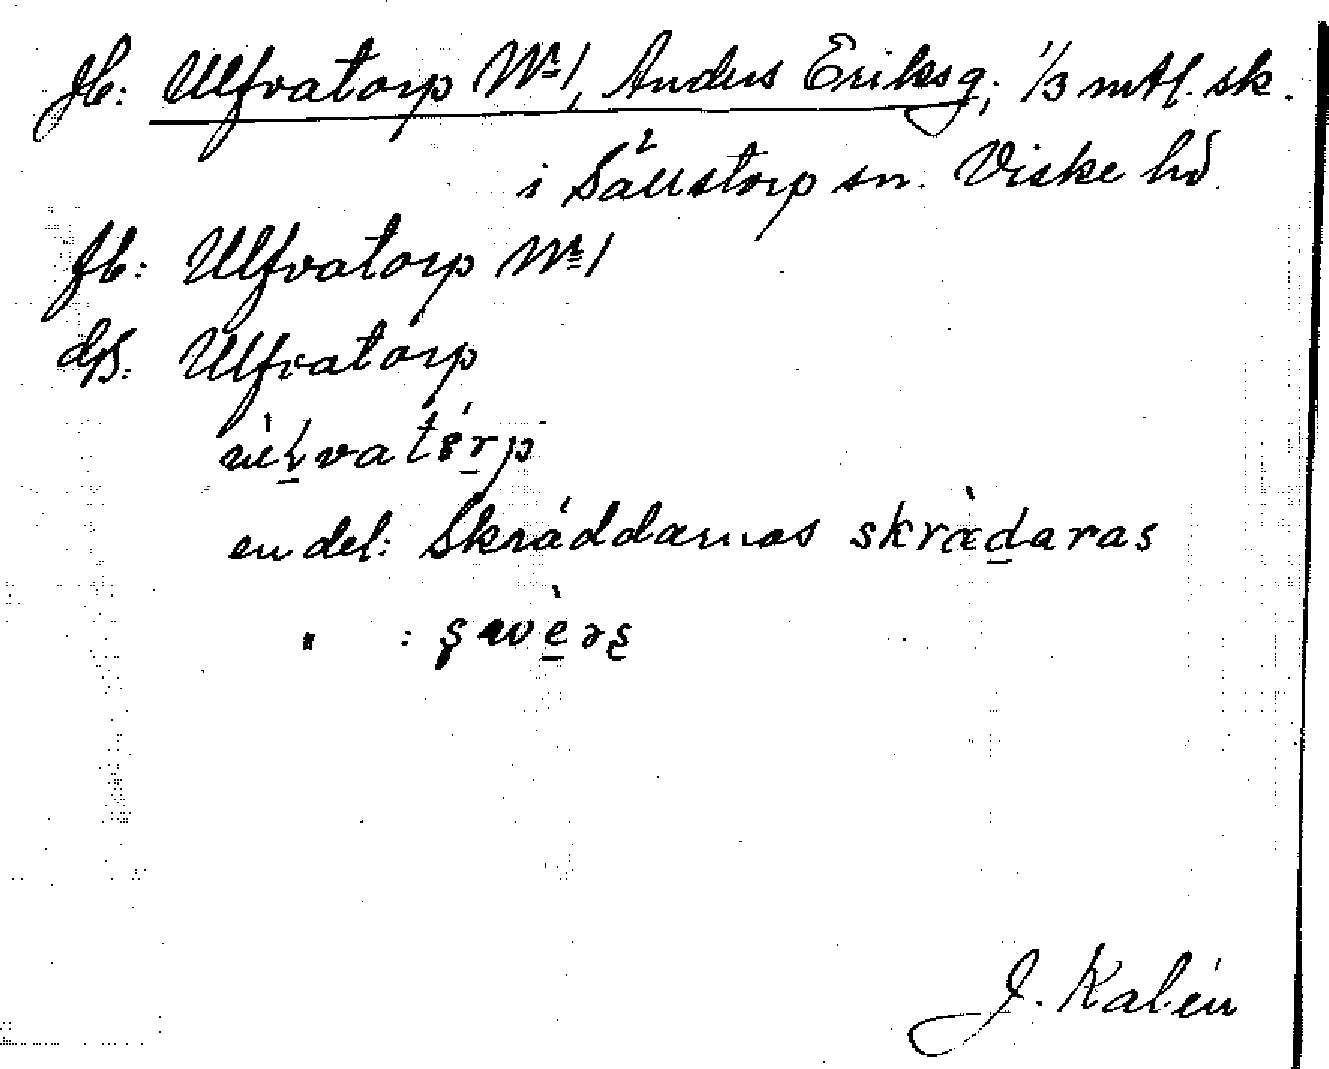 Jb: Ulfvatorp № 1, Anders Eriksg; 1/3 mtl. sk.
i Sällstorp sn. Viske hd.
fb: Ulfvatorp № 1
ds. Ulfvatorp
en del: Skräddarnas skrädaras
" :
J. Kalén